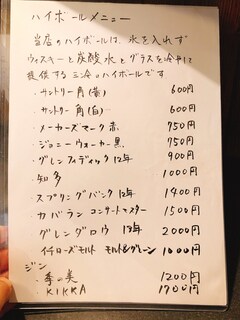 ハイボールメニュー
当店のハイボールは、氷を入れず
ウィスキーと炭酸水とグラスを冷やして
提供する三冷のハイボールです
・サントリー角(黄) 600円
・サントリー角(白) 600円
・メーカーズマーク赤 750円
・ジョニーウォーカー黒 750円
・グレンフィディック12年 900円
・知多 1000円
・スプリングバンク12年 1400円
・カバランコンサートマスター 1500円
・グレンダロウ13年 2000円
・イチローズモルト モルト&グレーン 1000円
ジン
・季の美 1200円
・KIKKA 1700円